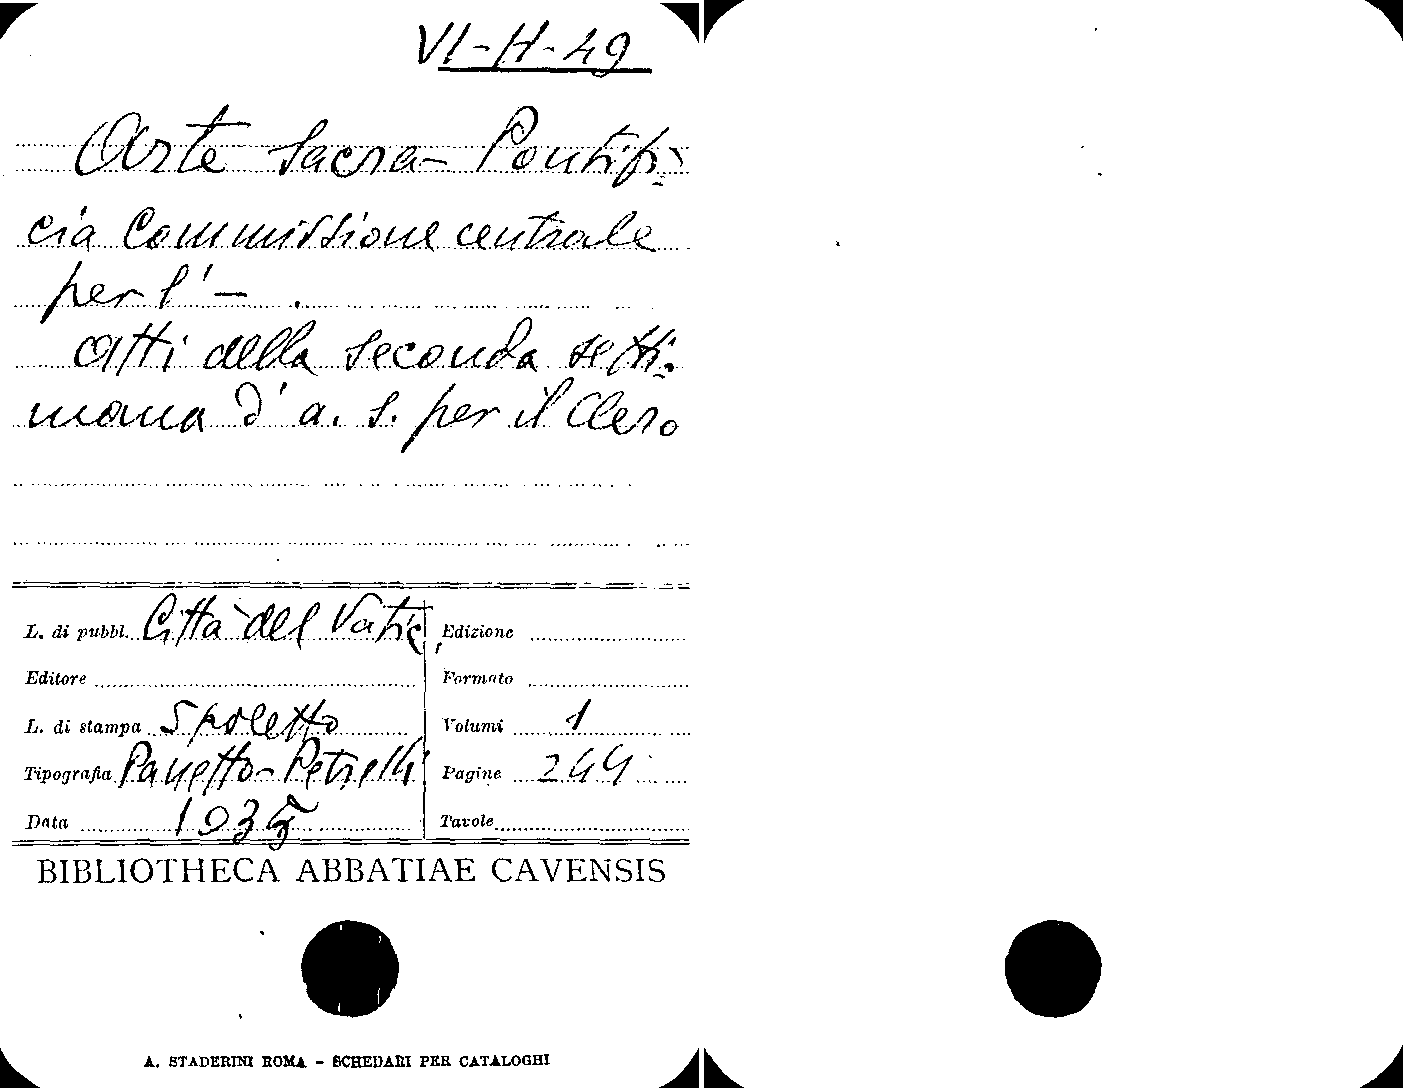 VI-H-49
Arte Sacra - Pontifi-
cia Commissione centrale
per l' - .
Atti della seconda setti-
mana d'a. s. per il Clero
L. di pubbl. Città del Vatic. Edizione
Editore Formato
L. di stampa Spoletto Volumi 1
Tipografia Panetto-Petrelli Pagine 244
Data 1935 Tavole
BIBLIOTHECA ABBATIAE CAVENSIS
A. STADERINI ROMA - SCHEDARI PER CATALOGHI